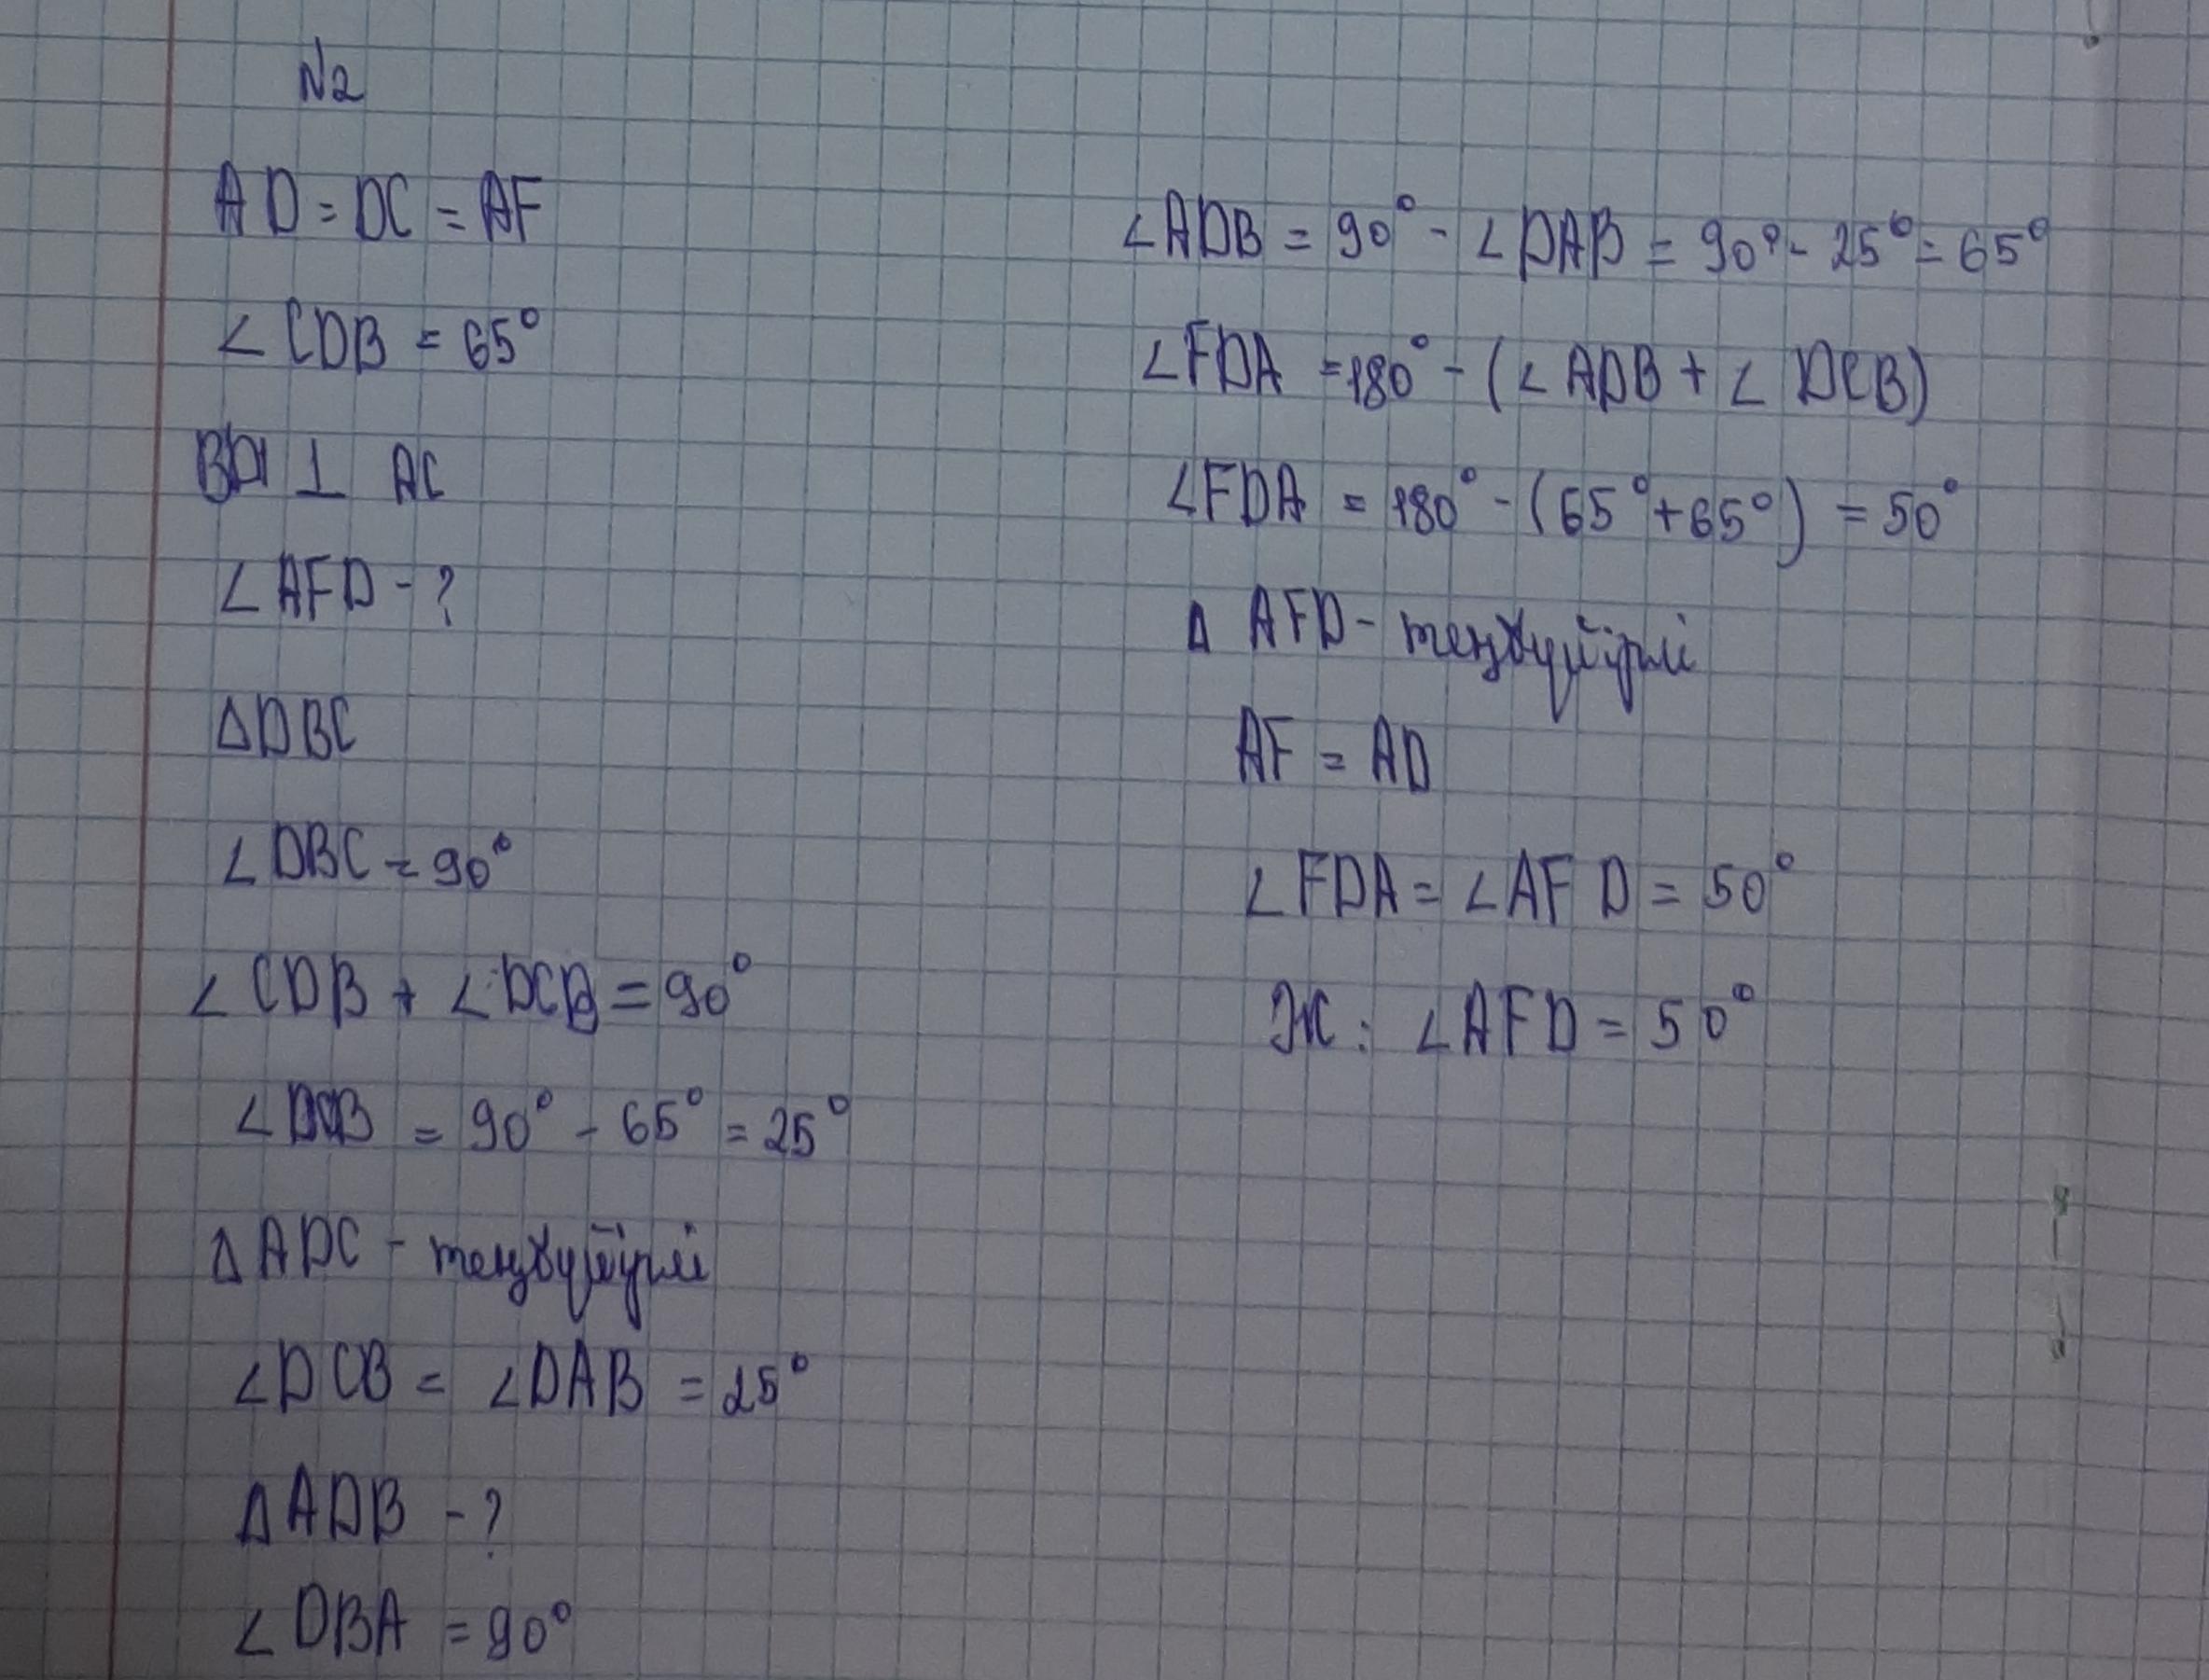 N2
AD = DC = AF
∠CDB = 65°
BD ⊥ AC
∠AFD - ?
ΔDBC
∠DBC = 90°
∠CDB + ∠DCB = 90°
∠DCB = 90° - 65° = 25°
ΔADC - теңбүйірлі
∠DCB = ∠DAB = 25°
ΔADB - ?
∠DBA = 90°
∠ADB = 90° - ∠DAB = 90° - 25° = 65°
∠FDA = 180° - (∠ADB + ∠DCB)
∠FDA = 180° - (65° + 65°) = 50°
Δ AFD - теңбүйірлі
AF = AD
∠FDA = ∠AFD = 50°
Ж: ∠AFD = 50°